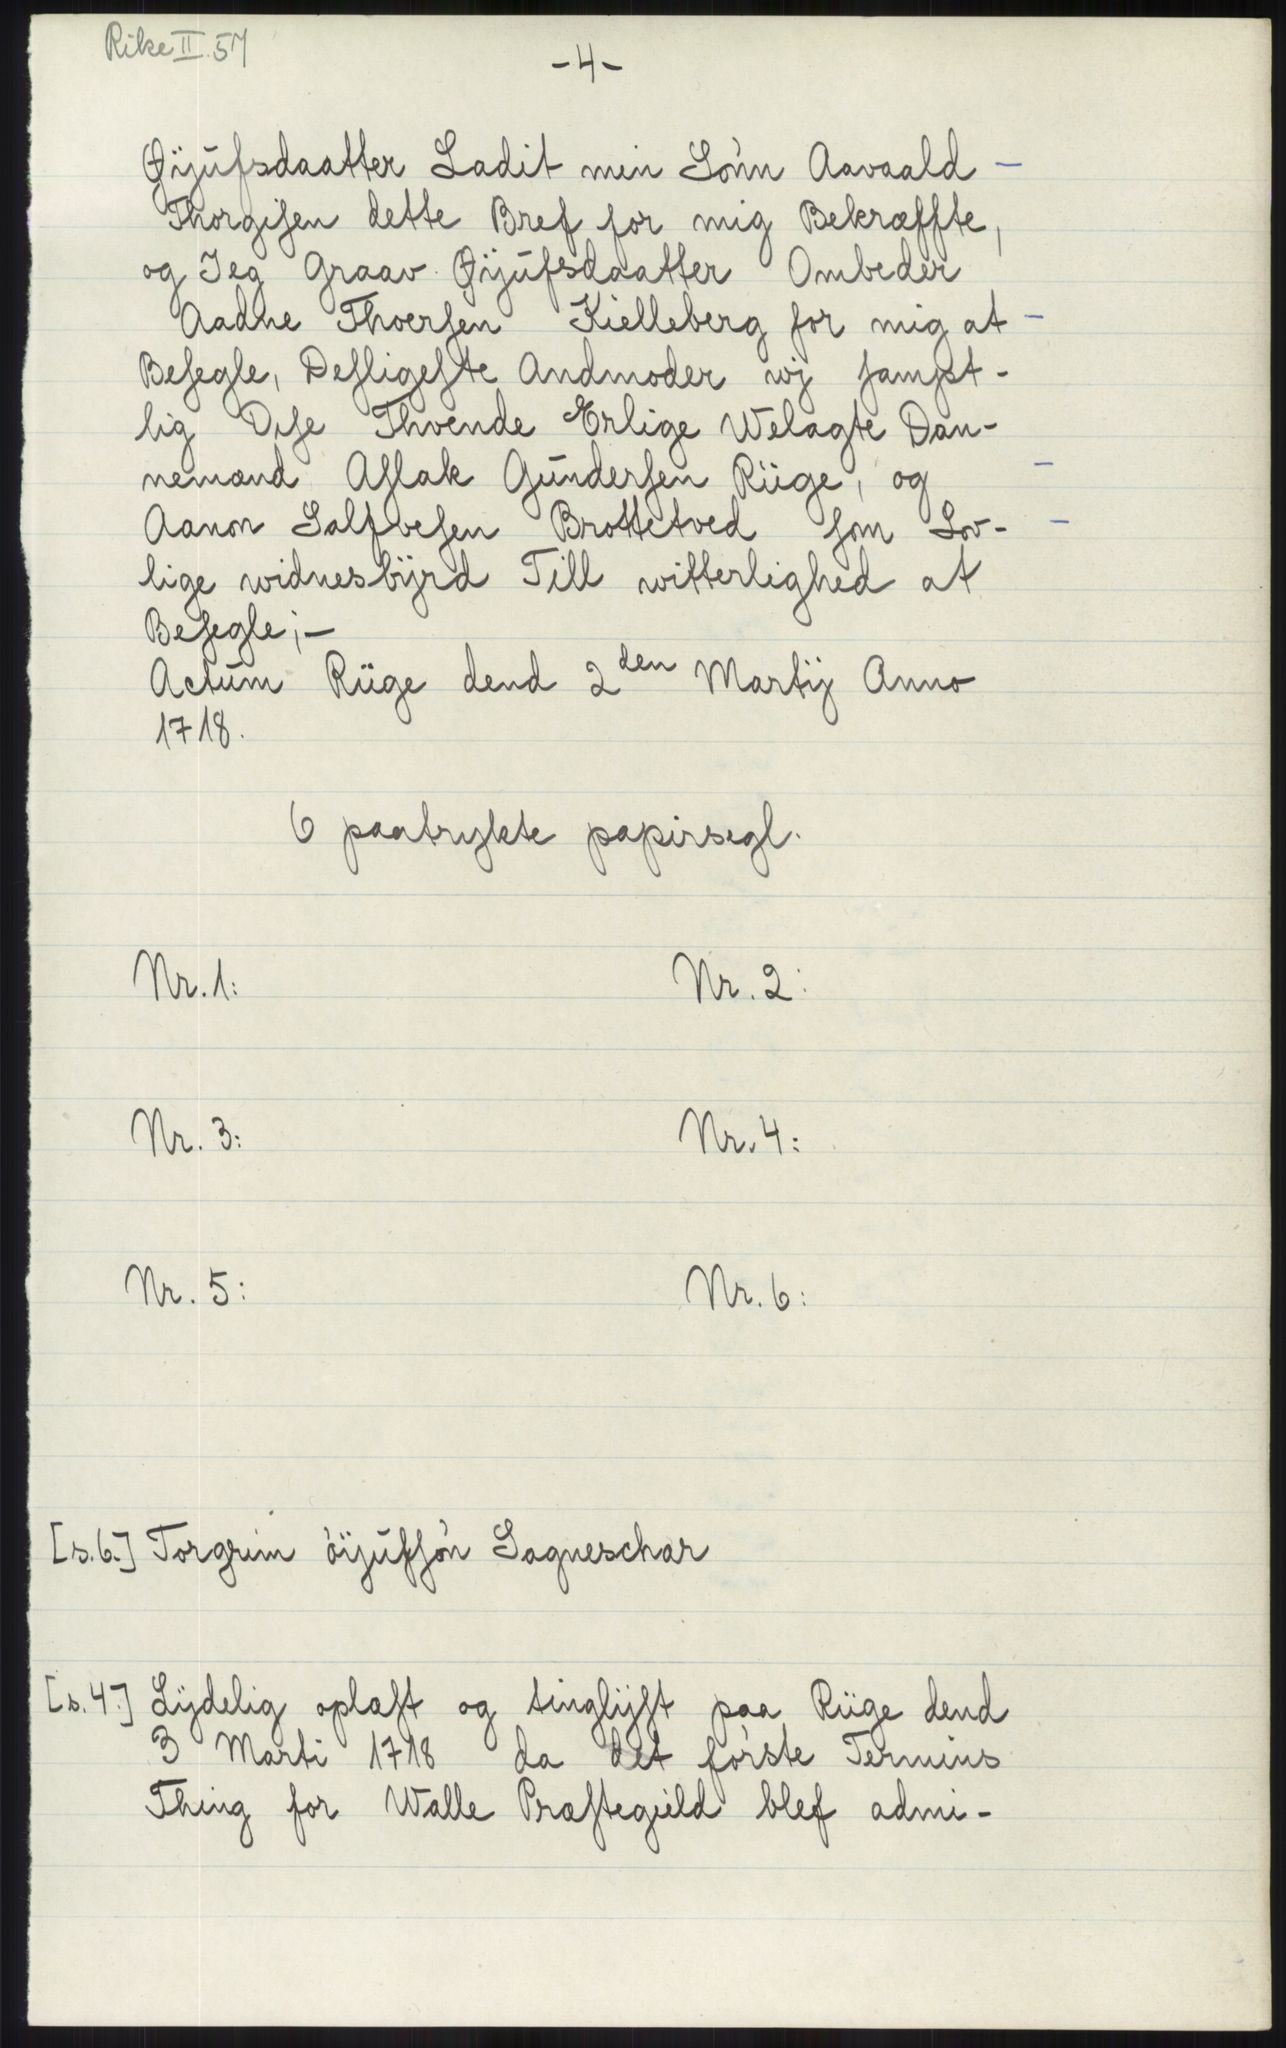 Rike II. 57
-4-
Øÿufsdaatter Ladit min Sónn Aavaald -
Thorgiſen dette Bref for mig Bekræffte,
og Jeg Graav Øÿufsdaatter Ombeder
Aadne Thoerſen Kielleberg for mig at -
Beſegle, Deſligeſte Andmoder wj ſampt-
lig Diſe Thvende Erlige Welagte Dan-
nemænd Aſlak Gunderſen Riige, og -
Aanon Salfveſen Brottetved ſom Lov- -
lige widnesbÿrd Till witterlighed at
Beſegle;-
Actum Riige dend 2den Martij Anno
1718.
6 paatrykte papirsegl.
Nr. 1: Nr. 2:
Nr. 3: Nr. 4:
Nr. 5: Nr. 6:
[s.6.] Torgrim óÿufſón Sagneschar
[s.4.] Lÿdelig oplæſt og tinglÿſt paa Riige dend
3 Marti 1718 da det fórste Termins
Thing for Walle Præſtegield blef admi-